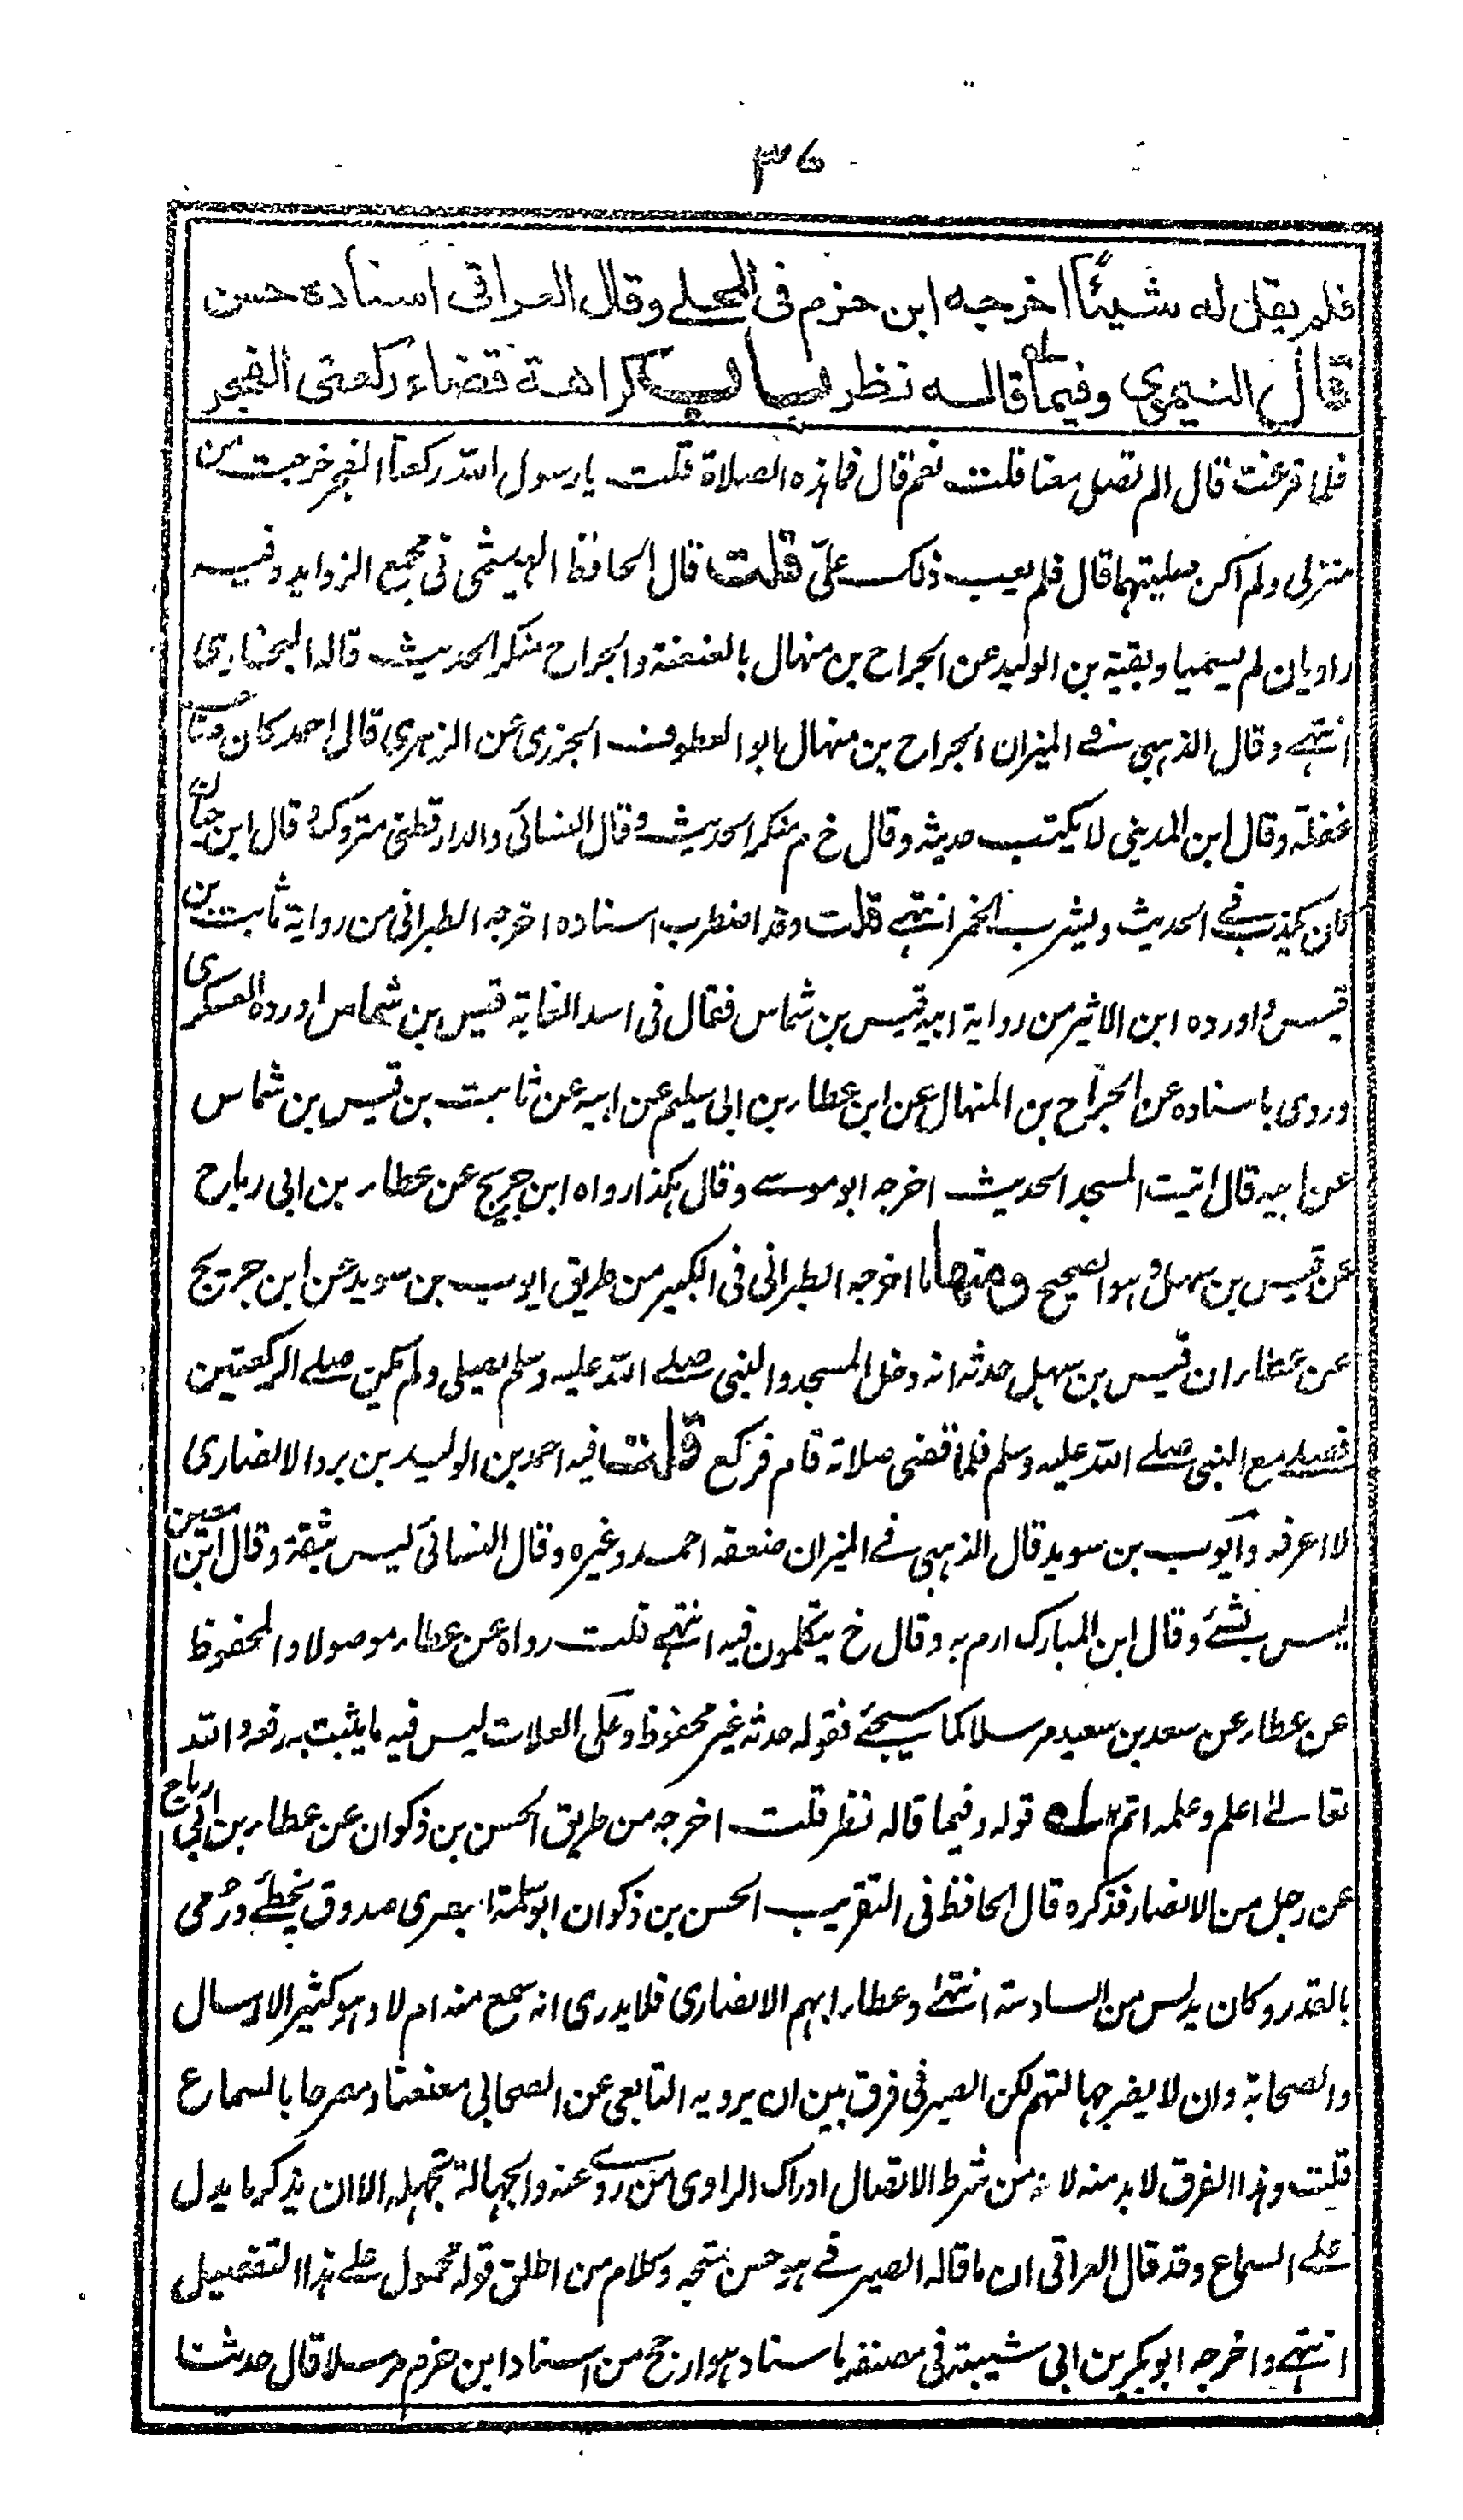 ٣٦
فلم يقل له شيئًا اخرجه ابن حزم فى المحلے وقال العراقى اسناده حسن
قال النيموى وفيما قاله نظر باب كراهة قضاء ركعتى الفجر
فلما فرغت قال الم تصل معنا قلت نعم قال فما هذه الصلاة قلت يا رسول الله ركعتا الفجر خرجت من
منزلى ولم اكن صليتهما قال فلم يعب ذلك علىّ قلت قال الحافظ الهيثمى فى مجمع الزوايد وفيه
راويان لم يسميا وبقية بن الوليد عن الجراح بن منهال بالعنعنة والجراح منكر الحديث قاله البخارى
انتهے وقال الذهبى فے الميزان الجراح بن منهال ابو العطوف الجزرى عن الزهرى قال احمد كان صاحب
غفلة وقال ابن المدينى لا يكتب حديثه وقال خ م منكر الحديث وقال النسائى والدارقطنى متروك وقال ابن حبان
كان يكذب فے الحديث ويشرب الخمر انتهے قلت وقد اضطرب اسناده اخرجه الطبرانى من رواية ثابت بن
قيس واورده ابن الاثير من رواية ابيه قيس بن شماس فقال فى اسد الغابة قيس بن شماس اورده العسكرى
وروى باسناده عن الجراح بن المنهال عن ابن عطاء بن ابى سليم عن ابيه عن ثابت بن قيس بن شماس
عن ابيه قال اتيت المسجد الحديث اخرجه ابو موسے وقال هكذا رواه ابن جريج عن عطاء بن ابى رباح
عن قيس بن سهل وهو الصحيح ومنها ما اخرجه الطبرانى فى الكبير من طريق ايوب بن سويد عن ابن جريج
عن عطاء ان قيس بن سهل حدثه انه دخل المسجد والنبى صلے الله عليه وسلم يصلى ولم يكن صلے الركعتين
فصلے مع النبى صلے الله عليه وسلم فلما قضى صلاته قام فركع قلت فيه احمد بن الوليد بن برد الانصارى
لا اعرفه وايوب بن سويد قال الذهبى فے الميزان ضعفه احمد وغيره وقال النسائى ليس بثقة وقال ابن معين
ليس بشئ وقال ابن المبارك ارم به وقال خ يتكلمون فيه انتهے قلت رواه عن عطاء موصولا والمحفوظ
عن عطاء عن سعد بن سعيد مرسلا كما سيجئ فقوله حدثه غير محفوظ وعلى العلات ليس فيه ما يثبت به رفعه والله
تعالے اعلم وعلمه اتم ؁ قوله وفيما قاله نظر قلت اخرجه من طريق الحسن بن ذكوان عن عطاء بن ابى رباح
عن رجل من الانصار فذكره قال الحافظ فى التقريب الحسن بن ذكوان ابو سلمة البصرى صدوق يخطئ ورُمى
بالقدر وكان يدلس من السادسة انتهے وعطاء ابهم الانصارى فلا يدرى انه سمع منه ام لا وهو كثير الارسال
والصحابة وان لا يضر جهالتهم لكن الصيرفى فرق بين ان يرويه التابعى عن الصحابى معنعنا ومصرحا بالسماع
قلت وهذا الفرق لا بد منه لانه من شرط الاتصال ادراك الراوى لمن روے عنه والجهالة تجهله الا ان يذكر ما يدل
علے السماع وقد قال العراقى ان ما قاله الصيرفے هو حسن متجه وكلام من اطلق قوله محمول علے هذا التفصيل
انتهے واخرجه ابو بكر بن ابى شيبة فى مصنفه باسناد هو ارجح من اسناد ابن حزم مرسلا قال حدثنا